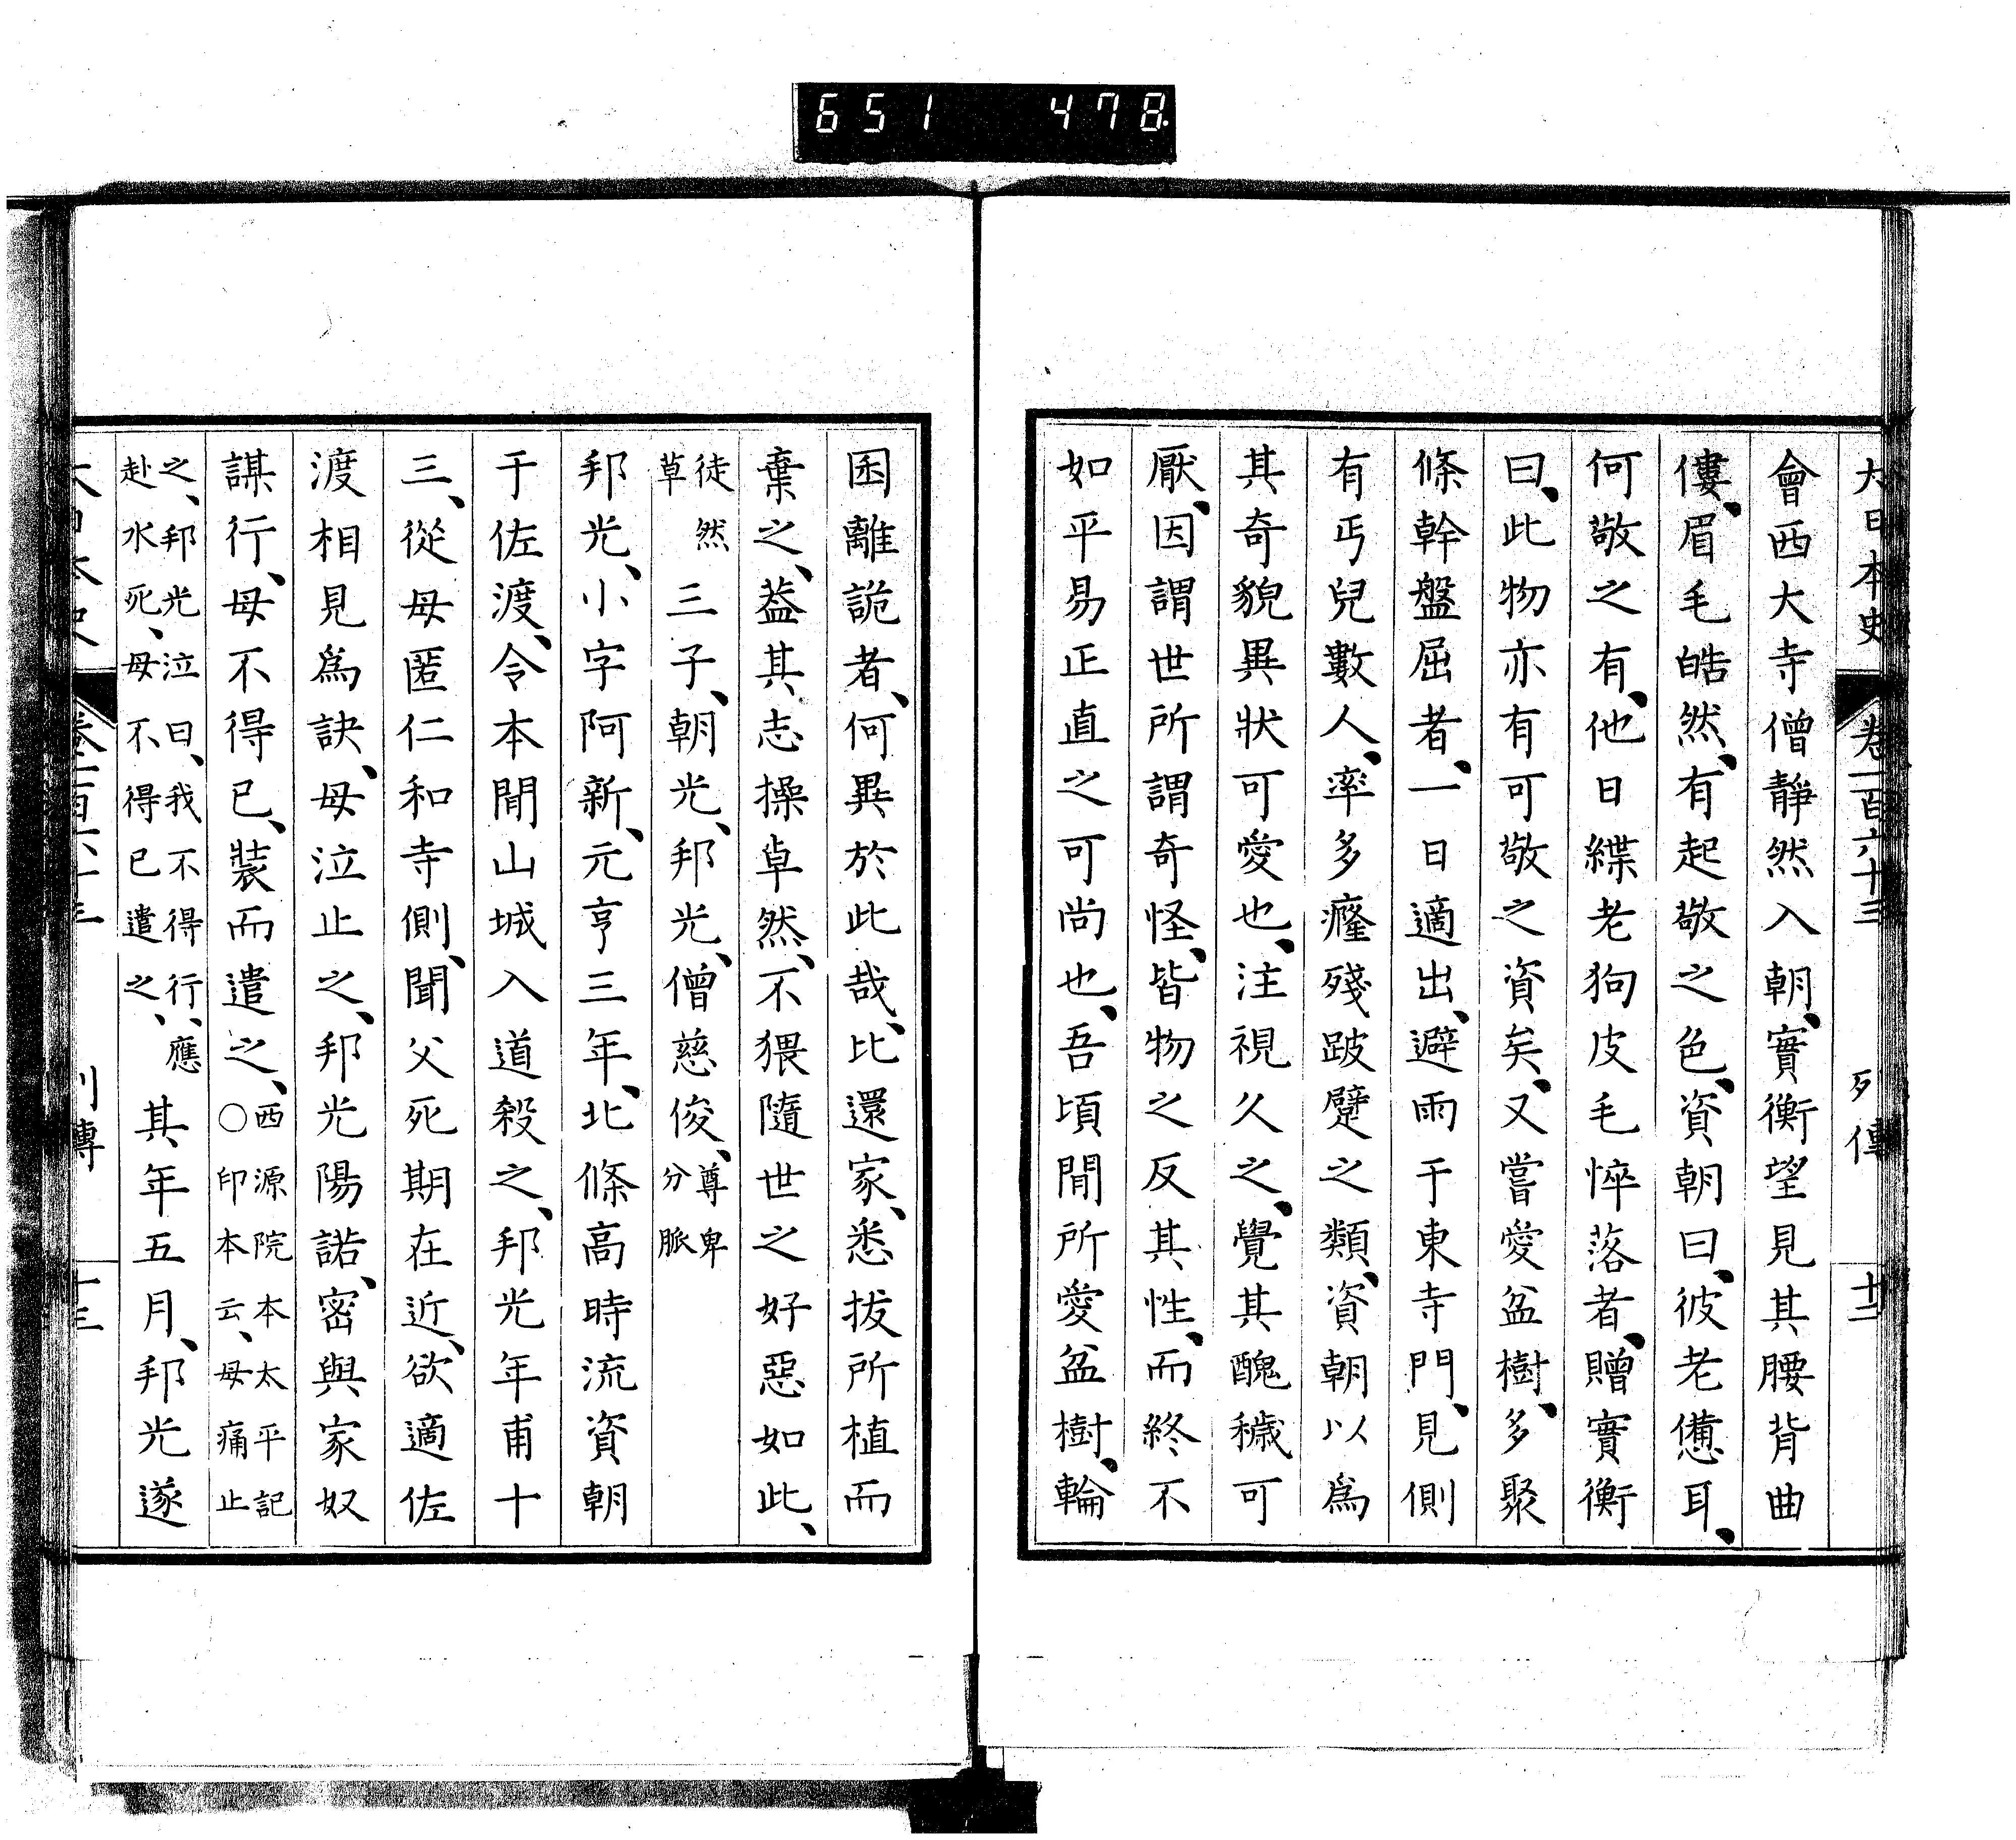 651 478
大日本史 卷一百六十三 列傳 十二
會西大寺僧靜然入朝、實衡望見其腰背曲
僂、眉毛皓然、有起敬之色、資朝曰、彼老憊耳、
何敬之有、他日緤老狗皮毛悴落者、贈實衡
曰、此物亦有可敬之資矣、又嘗愛盆樹、多聚
條幹盤屈者、一日適出、避雨于東寺門、見側
有丐兒數人、率多癃殘跛躄之類、資朝以爲
其奇貌異狀可愛也、注視久之、覺其醜穢可
厭、因謂世所謂奇怪、皆物之反其性、而終不
如平易正直之可尚也、吾頃間所愛盆樹、輪
困離詭者、何異於此哉、比還家、悉拔所植而
棄之、葢其志操卓然、不猥隨世之好惡如此、
徒然
草
三子、朝光、邦光、僧慈俊、
尊卑
分脈
邦光、小字阿新、元亨三年、北條高時流資朝
于佐渡、令本間山城入道殺之、邦光年甫十
三、從母匿仁和寺側、聞父死期在近、欲適佐
渡相見爲訣、母泣止之、邦光陽諾、密與家奴
謀行、母不得已、裝而遣之、
西源院本太平記
○印本云、母痛止
之、邦光泣曰、我不得行、應
赴水死、母不得已遣之、
其年五月、邦光遂
列傳 十三